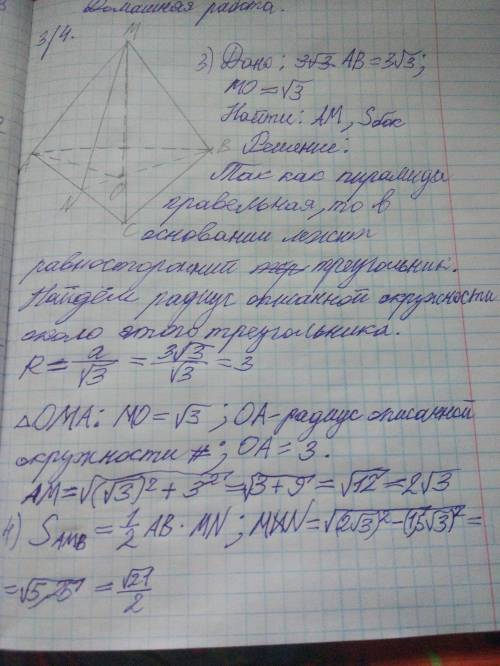 Домашняя работа.
3/4.
M
3) Дано: 3√3 AB = 3√3;
MO = √3
Найти: AM, Sбок
B
Решение:
O
Так как пирамида
N
правельная, то в
C
основании лежит
равносторонний треугольник.
Найдём радиус описанной окружности
около этого треугольника.
R = a/√3 = 3√3/√3 = 3
△OMA: MO = √3; OA - радиус описанной
окружности; OA = 3.
AM = √((√3)² + 3²) = √(3 + 9) = √12 = 2√3
4) S AMB = 1/2 AB · MN; MN = √((2√3)² - (1,5√3)²) =
= √5,25 = √21/2